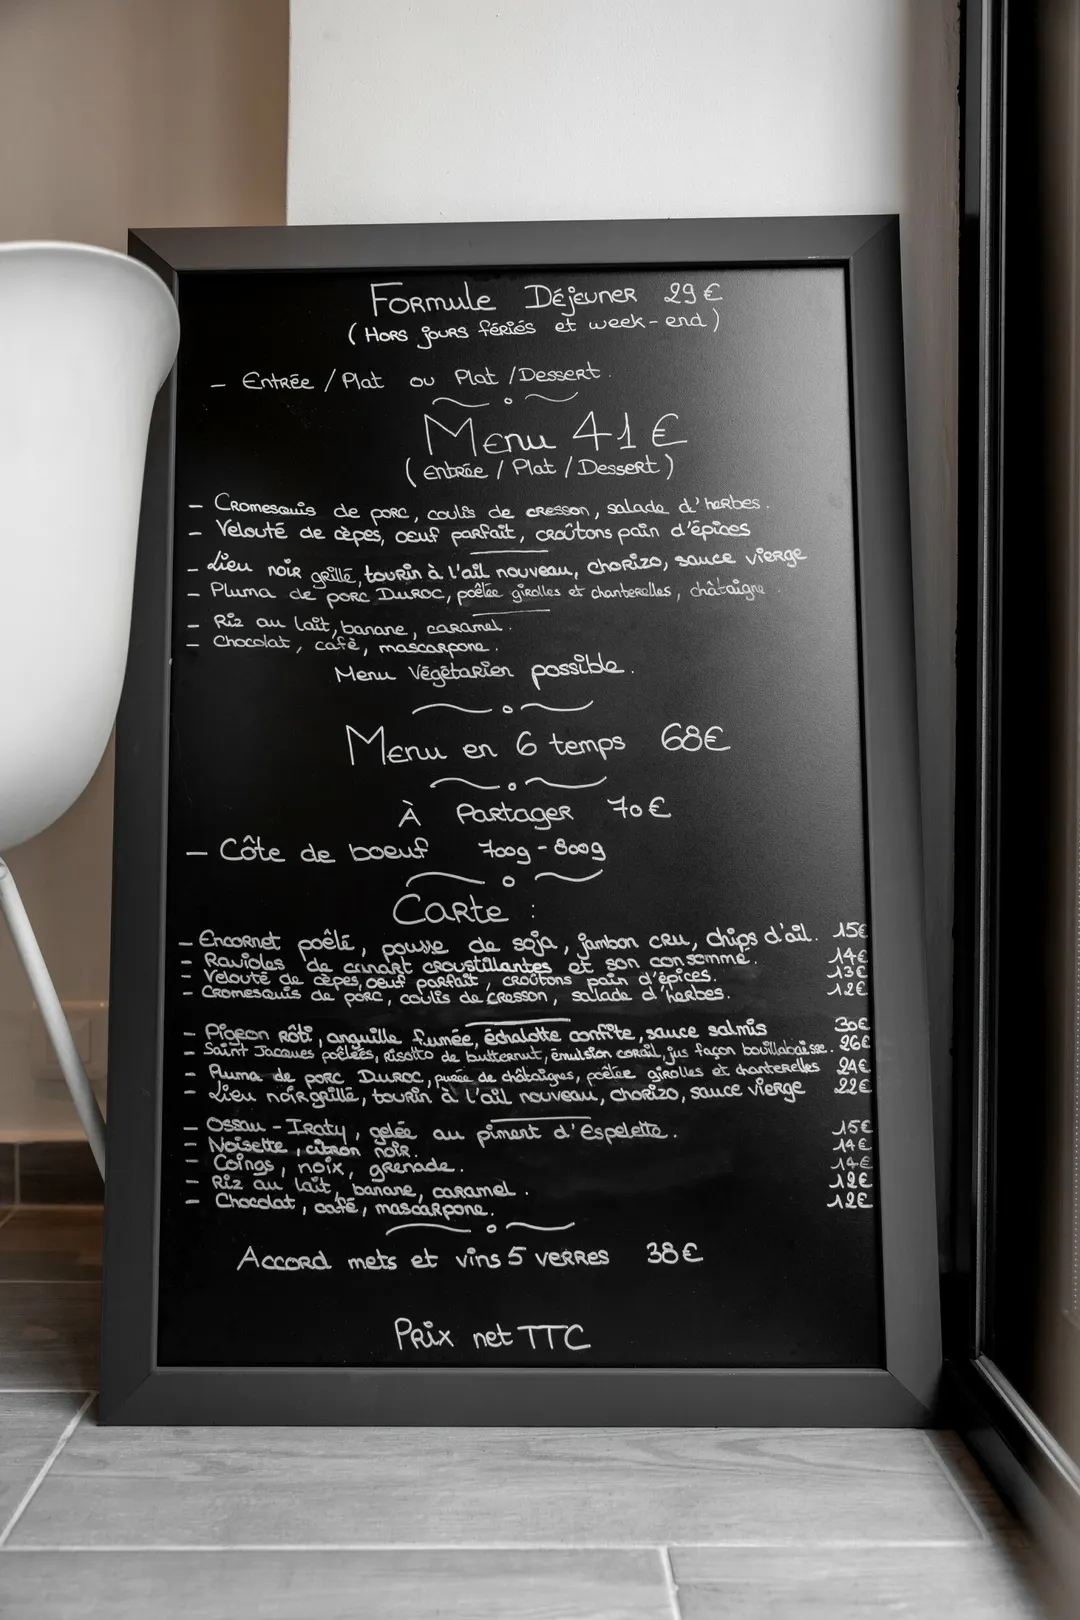 Formule Déjeuner 29€
(Hors jours fériés et week-end)
- Entrée / Plat ou Plat / Dessert.
Menu 41€
(entrée / Plat / Dessert)
- Cromesquis de porc, coulis de cresson, salade d'herbes.
- Velouté de cèpes, oeuf parfait, croûtons pain d'épices
- Lieu noir grillé, tourin à l'ail nouveau, chorizo, sauce vierge
- Pluma de porc Duroc, poêlée girolles et chanterelles, châtaigne.
- Riz au lait, banane, caramel.
- Chocolat, café, mascarpone.
Menu Végétarien possible.
Menu en 6 temps 68€
À Partager 70€
- Côte de boeuf 700g - 800g
Carte :
- Encornet poêlé, pousse de soja, jambon cru, chips d'ail. 15€
- Ravioles de canart croustillantes et son consommé. 14€
- Velouté de cèpes, oeuf parfait, croûtons pain d'épices. 13€
- Cromesquis de porc, coulis de cresson, salade d'herbes. 12€
- Pigeon rôti, anguille fumée, échalotte confite, sauce salmis 30€
- Saint Jacques poêlées, risotto de butternut, émulsion corail, jus façon bouillabaisse. 26€
- Pluma de porc Duroc, purée de châtaignes, poêlée girolles et chanterelles 24€
- Lieu noir grillé, tourin à l'ail nouveau, chorizo, sauce vierge 22€
- Ossau-Iraty, gelée au piment d'Espelette. 15€
- Noisette, citron noir. 14€
- Coings, noix, grenade. 14€
- Riz au lait, banane, caramel. 12€
- Chocolat, café, mascarpone. 12€
Accord mets et vins 5 verres 38€
Prix net TTC